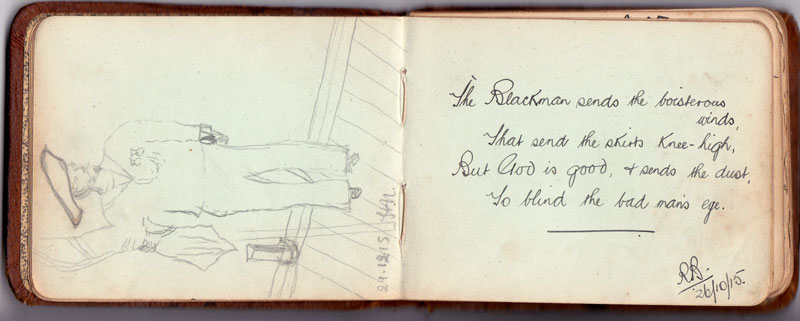 29.12.15
The Blackman sends the boisterous
winds,
That send the skirts knee-high,
But God is good, & sends the dust,
To blind the bad man's eye.
R.B.
26/10/15.